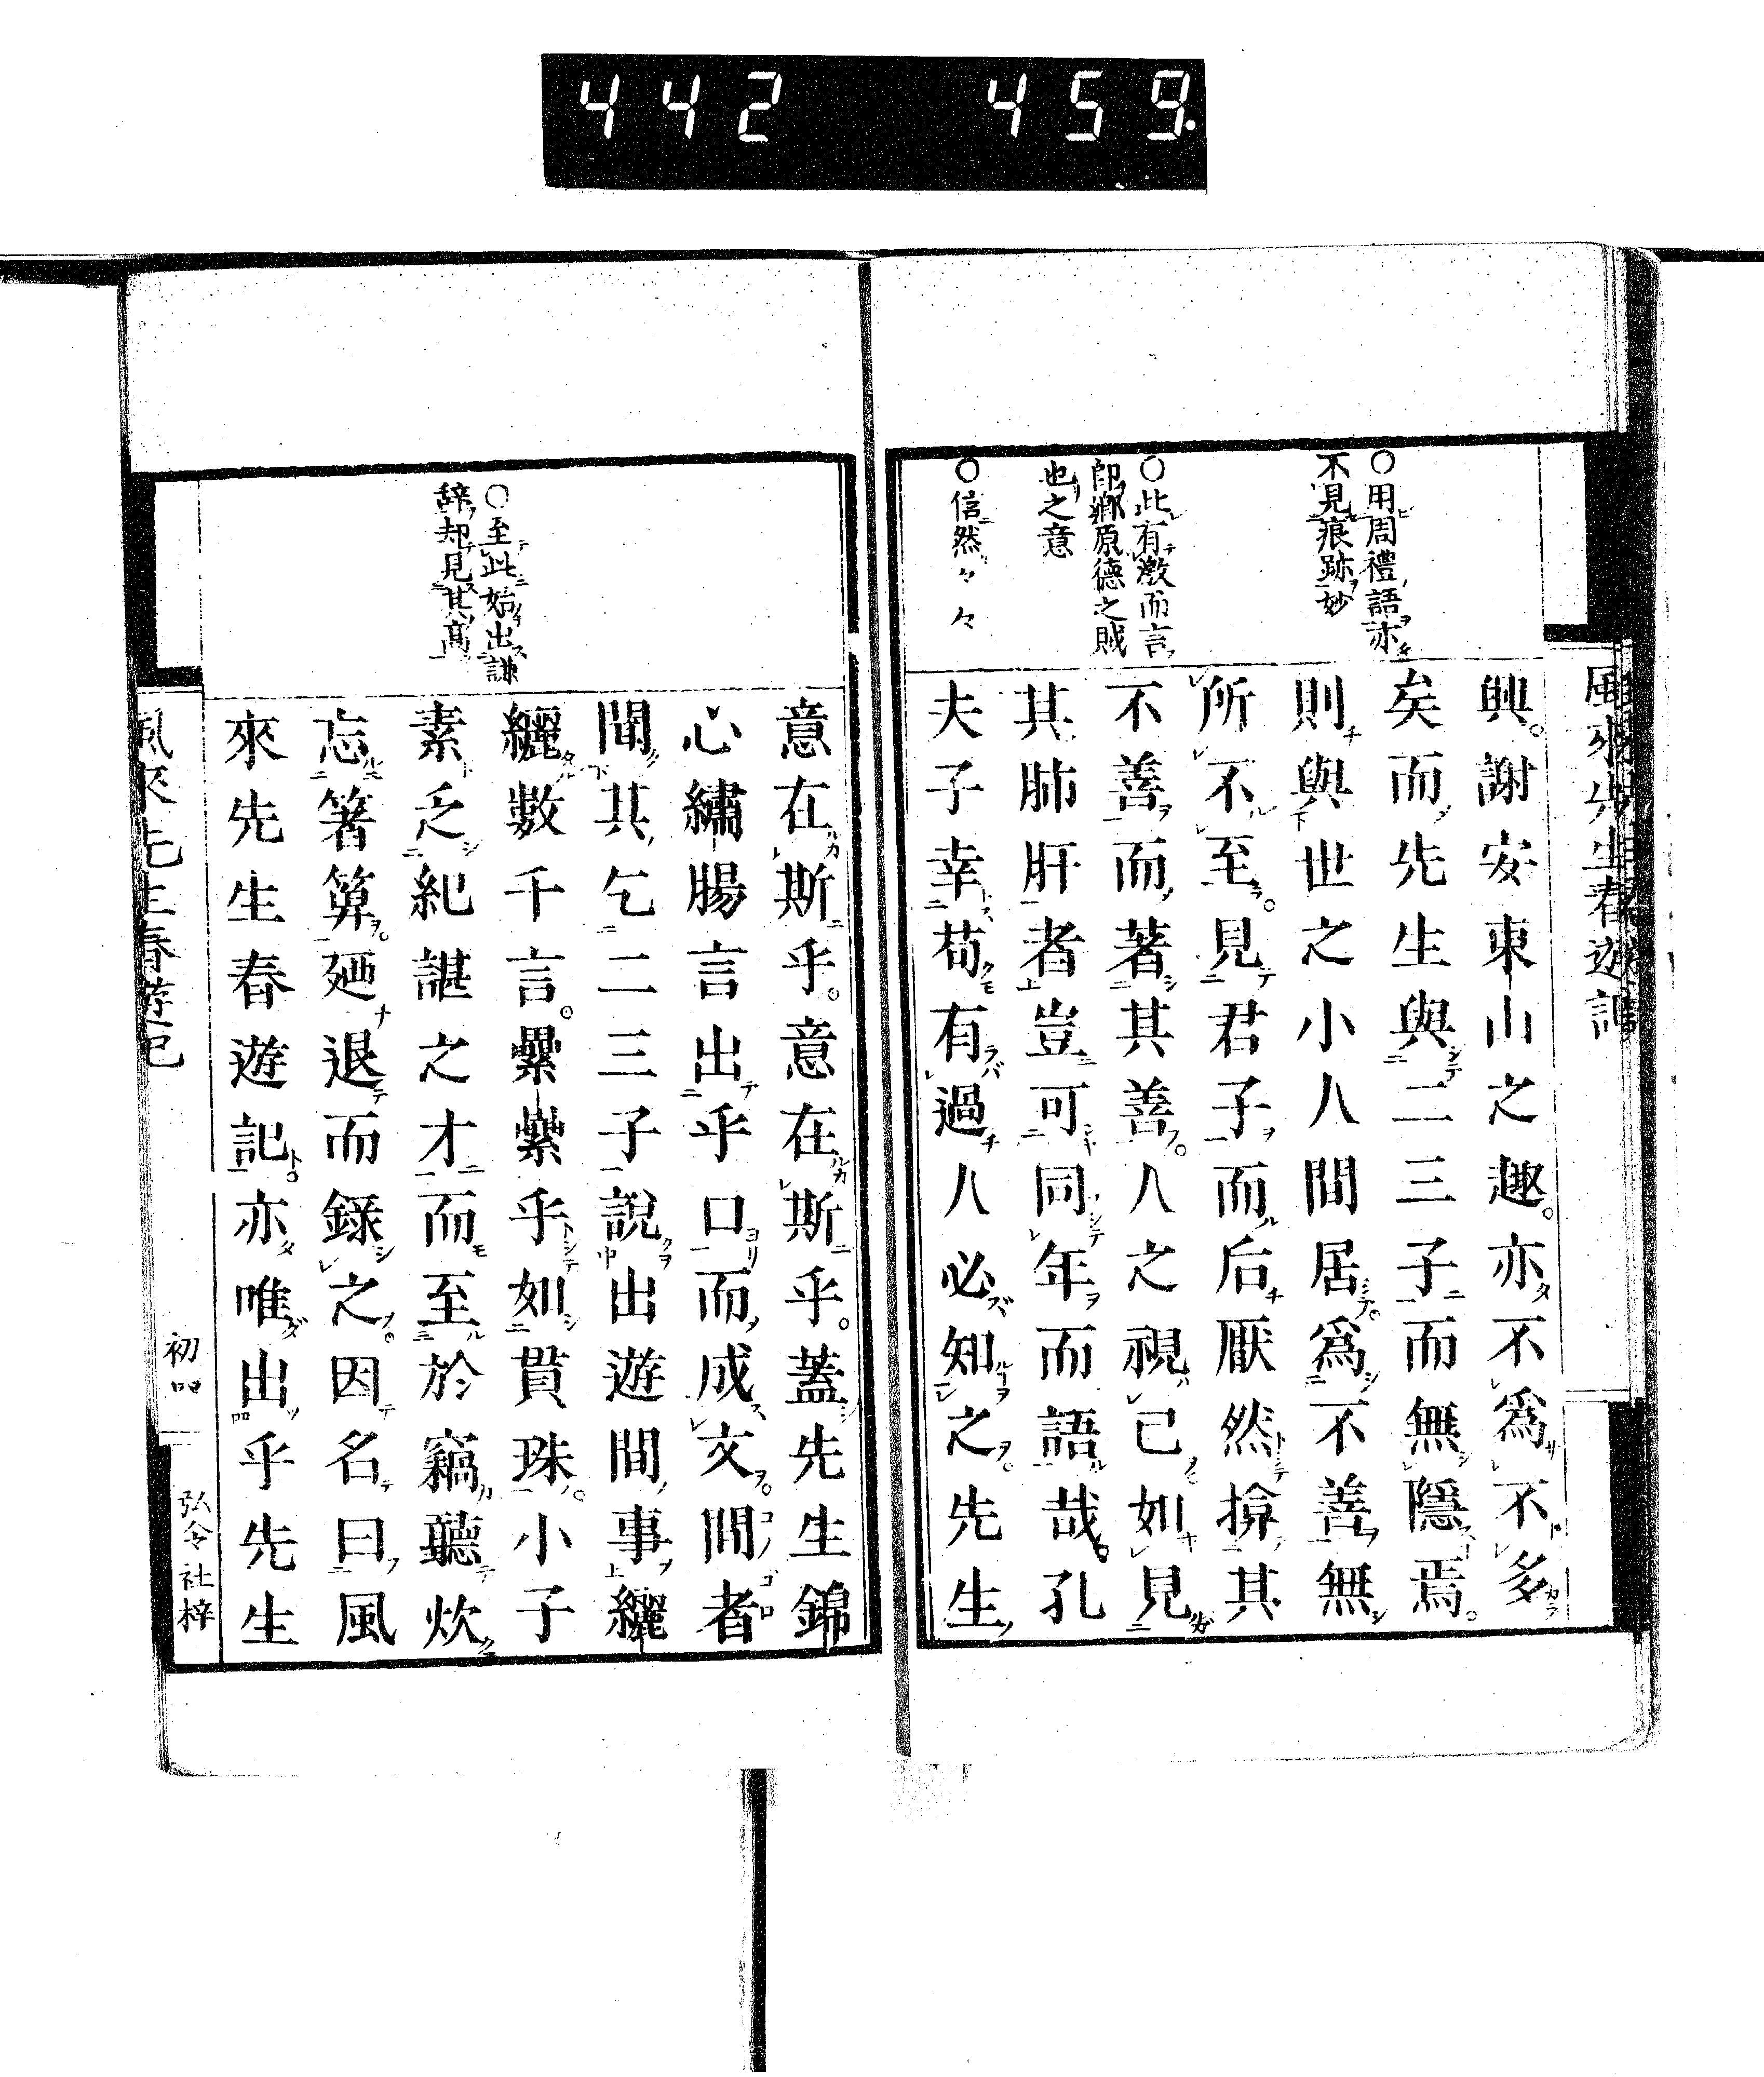 442 459.
風來先生春遊記
○用周禮語亦
不見痕跡妙
○此有激而言
即鄉原德之賊
也之意
○信然々々
興。謝安東山之趣。亦不爲不多
矣而先生與二三子而無隱焉。
則與世之小人間居爲不善無
所不至。見君子而后厭然揜其
不善而著其善。人之視己如見
其肺肝者豈可同年而語哉。孔
夫子幸苟有過人必知之。先生
○至此始出謙
辞却見其高
意在斯乎。意在斯乎。蓋先生錦
心繡腸言出乎口而成文。間者
聞其乞二三子說出遊間事纚
纚數千言。纍纍乎如貫珠。小子
素乏紀諶之才而至於竊聽炊
忘箸箅。廼退而錄之。因名曰風
來先生春遊記。亦唯出乎先生
風來先生春遊記
初品
弘令社梓